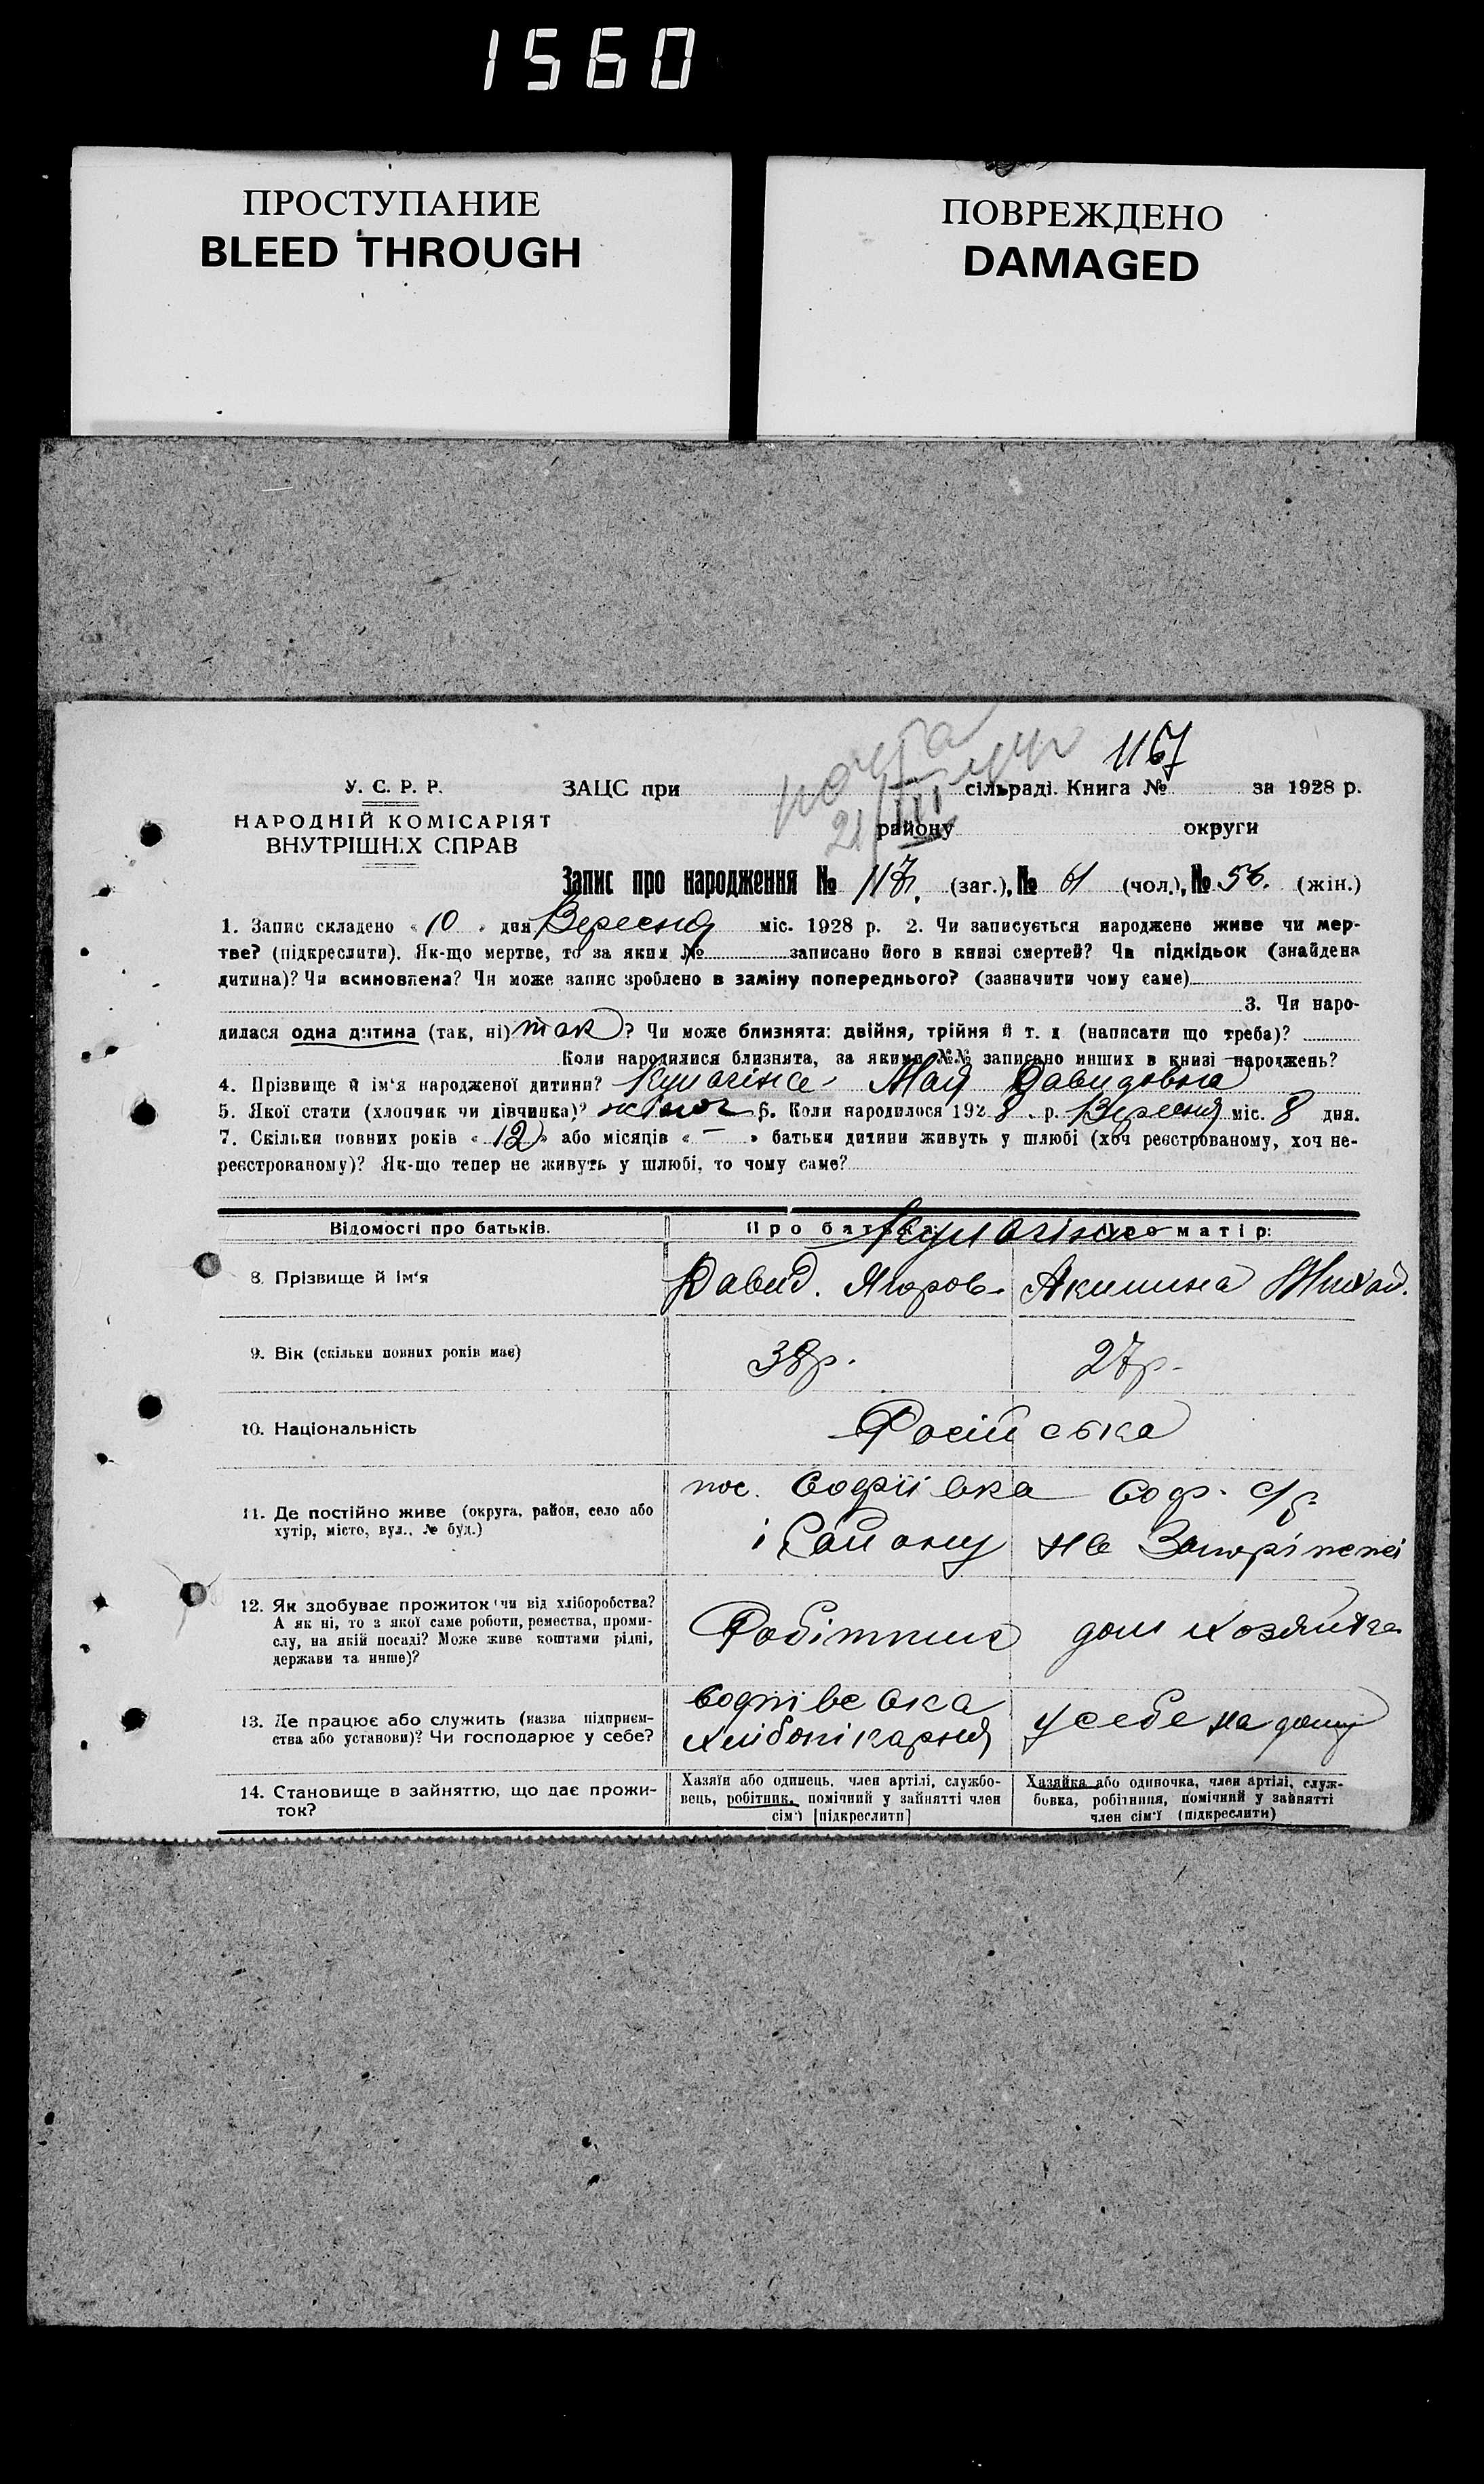 1560
ПРОСТУПАНИЕ
BLEED THROUGH
ПОВРЕЖДЕНО
DAMAGED
У. С. Р. Р.
НАРОДНІЙ КОМІСАРІЯТ
ВНУТРІШНІХ СПРАВ
ЗАЦС при сільраді. Книга № за 1928 р.
району округи
Запис про народження № 117. (заг.), № 61 (чол.), № 56. (жін.)
1. Запис складено « 10 » дня Вересня міс. 1928 р. 2. Чи записується народжене живе чи мер-
тве? (підкреслити). Як-що мертве, то за яким № записано його в книзі смертей? Чи підкідьок (знайдена
дитина)? Чи всиновлена? Чи може запис зроблено в заміну попереднього? (зазначити чому саме)
3. Чи наро-
дилася одна дитина (так, ні) так? Чи може близнята: двійня, трійня й т. д (написати що треба)?
Коли народилися близнята, за якими №№ записано инших в книзі народжень?
4. Прізвище й ім'я народженої дитини? Мая Давидовна
5. Якої стати (хлопчик чи дівчинка)? 6. Коли народилося 1928 р. Вересня міс. 8 дня.
7. Скільки повних років « 12 » або місяців « — » батьки дитини живуть у шлюбі (хоч реєстрованому, хоч не-
реєстрованому)? Як-що тепер не живуть у шлюбі, то чому саме?
Відомості про батьків. Про батька: Про матір:
8. Прізвище й ім'я
Давид. Ягоров. Акилина Михай.
9. Вік (скільки повних років має) 38р. 27р.
10. Національність Російська
11. Де постійно живе (округа, район, село або
хутір, місто, вул., № буд.)
пос. Софіївка Соф. с/р
і Району на Запоріжжі
12. Як здобуває прожиток чи від хліборобства?
А як ні, то з якої саме роботи, ремества, проми-
слу, на якій посаді? Може живе коштами рідні,
держави та инше)?
Робітник дом хозяйка
13. Де працює або служить (назва підприєм-
ства або установи)? Чи господарює у себе?
Софіївська
хлібопікарня
у себе на дому
14. Становище в зайняттю, що дає прожи-
ток?
Хазяїн або одинець, член артілі, службо-
вець, робітник, помічний у зайнятті член
сім'ї [підкреслити]
Хазяйка або одиночка, член артілі, служ-
бовка, робітниця, помічний у зайнятті
член сім'ї (підкреслити)